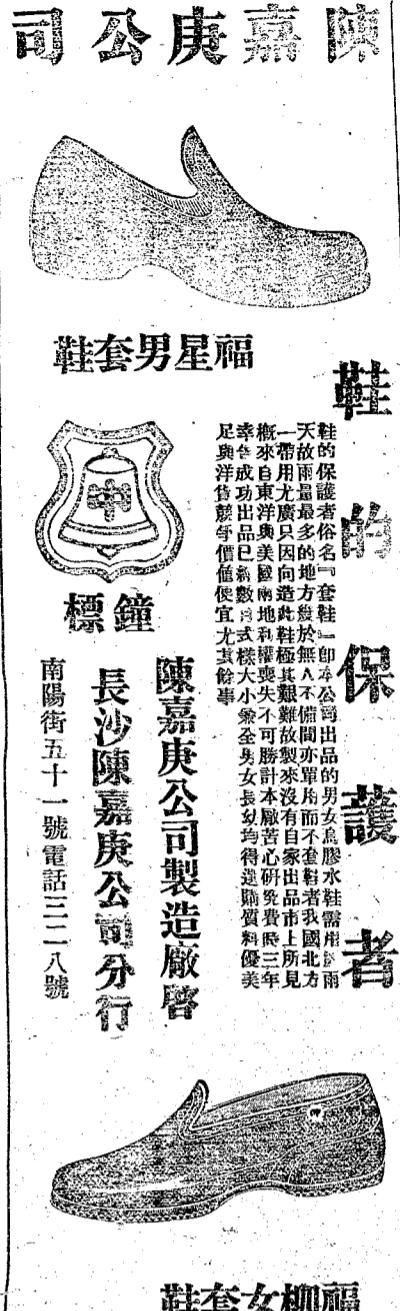 陳嘉庚公司
福星男套鞋
鞋的保護者
鞋的保護者俗名『套鞋』即本公司出品的男女烏膠水鞋需用於雨
天故雨量最多的地方幾於無人不備間亦單用而不套鞋者我國北方
一帶用尤廣只因向造此鞋極其艱難故製來沒有自家出品市上所見
概來自東洋與美國兩地利權喪失不可勝計本廠苦心研究費時三年
幸告成功出品已經數月式樣大小兼全男女長幼均得選購質料優美
足與洋貨競爭價值便宜尤其餘事
中
鐘標
陳嘉庚公司製造廠啓
長沙陳嘉庚公司分行
南陽街五十一號電話三二八號
福柳女套鞋